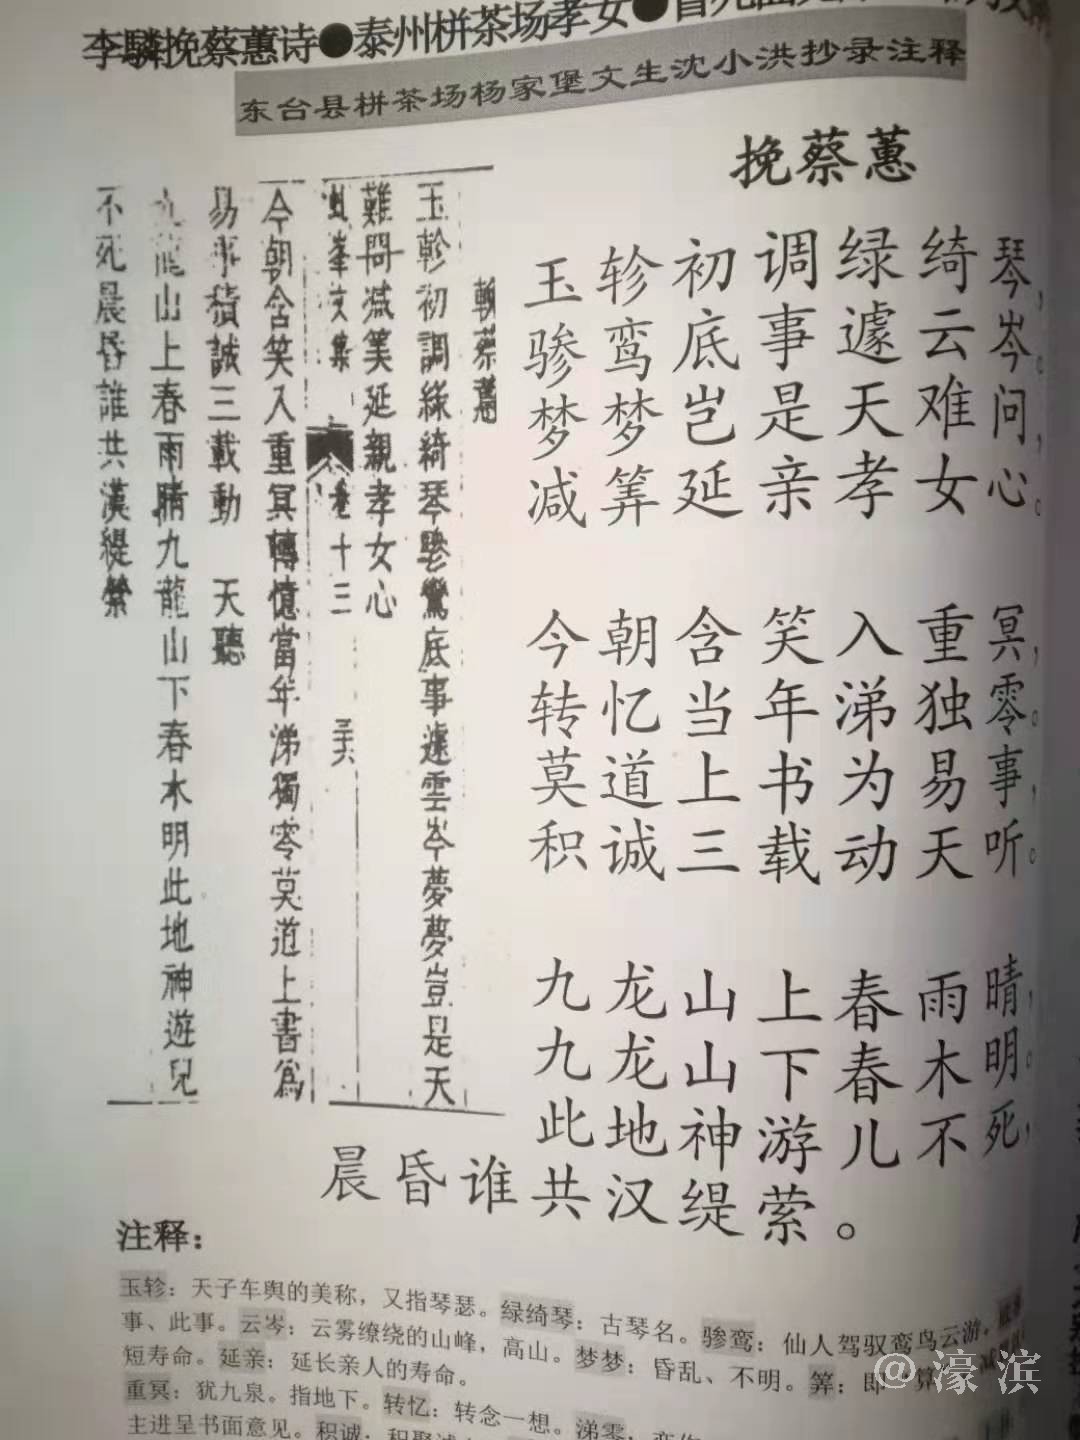 李驎挽蔡蕙诗●泰州栟茶场孝女●
东台县栟茶场杨家堡文生沈小洪抄录注释
挽蔡蕙
玉轸初调绿绮琴，
骖鸾底事遽云岑。
梦梦岂是天难问，
减筭延亲孝女心。
今朝含笑入重冥，
转忆当年涕独零。
莫道上书为易事，
积诚三载动天听。
九龙山上春雨晴，
九龙山下春木明。
此地神游儿不死，
晨昏谁共汉缇萦。
輓蔡蕙
玉軫初調綠綺琴驂鸞底事遽雲岑夢夢豈是天
難問減筭延親孝女心
卷十三
今朝含笑入重冥轉憶當年涕獨零莫道上書爲
易事積誠三載動 天聽
九龍山上春雨晴九龍山下春木明此地神遊兒
不死晨昏誰共漢緹縈
注释：
玉轸：天子车舆的美称，又指琴瑟。绿绮琴：古琴名。骖鸾：仙人驾驭鸾鸟云游。
事、此事。云岑：云雾缭绕的山峰，高山。梦梦：昏乱、不明。筭：即“算
短寿命。延亲：延长亲人的寿命。
重冥：犹九泉。指地下。转忆：转念一想。涕零：
主进呈书面意见。积诚：积聚诚
@濠滨